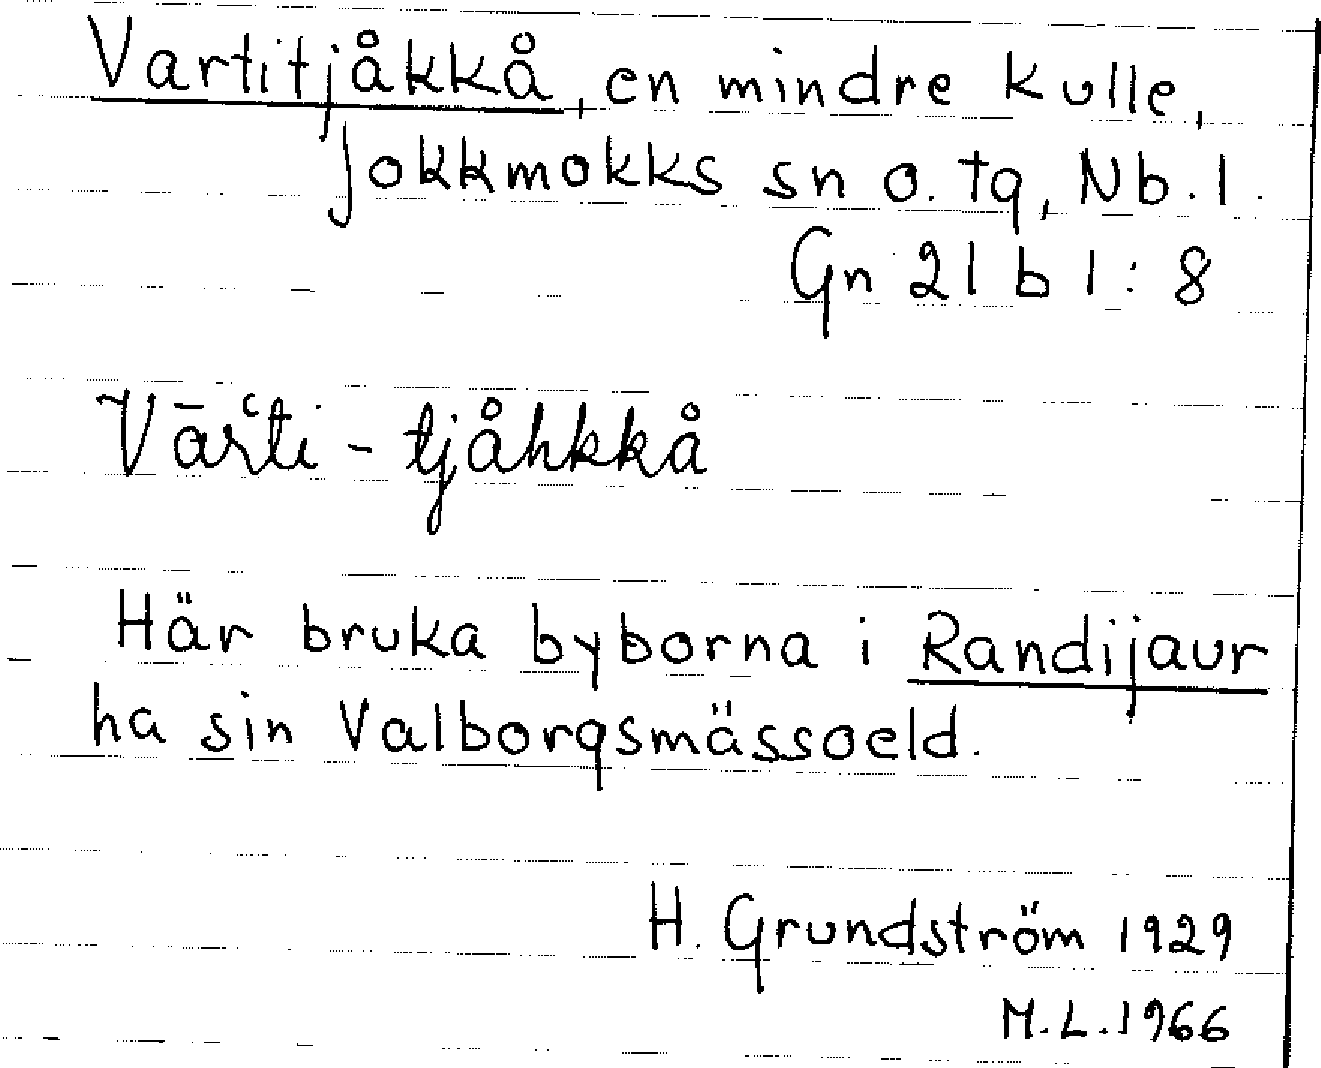 Vartitjåkkå, en mindre kulle,
Jokkmokks sn o. tg, Nb. l.
Gn 21 b 1 : 8
Vār‘ti - tjåhkkå
Här bruka byborna i Randijaur
ha sin Valborgsmässoeld.
H. Grundström 1929
M.L. 1966